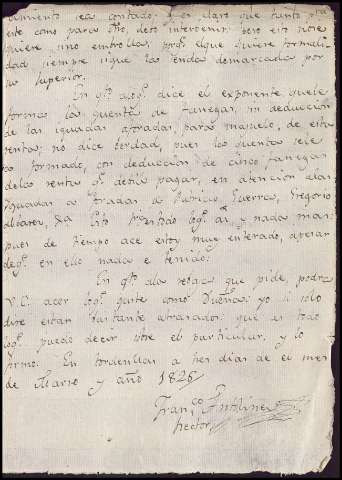 amiento sea contado: y es claro que tanto pra
este como para otro, devo intervenir: pero esto no se
quiere, sino embrollar, porqe. el que quiere formali
dad siempre sigue la senda demarcada por
su superior.
En qto. a qe. dice el exponente, que le
formo la quenta de fanegas, sin deducción
de las iguadas aforadas, para majuelo, de esta
renta; no dice berdad, pues la quenta se le
a formado, con deducción de cinco fanegas
de la renta qe. debía pagar, en atención a las
iguadas a foradas a Patricio Guerra, Gregorio
Albarez,
pues de tiempo ace estoy muy enterado, apesar
de qe. en ello nada e tenido:
En qto. a la rebaja que pide, podra
V.E. acer lo qe. guste como Dueño: yo si solo
dire estan bastante atrasados: que es todo
lo qe. puedo decir sobre el particular, y lo
firmo: En tordesillas a tres dias de el mes
de Marzo y año 1826
Franco. Antoline
hector